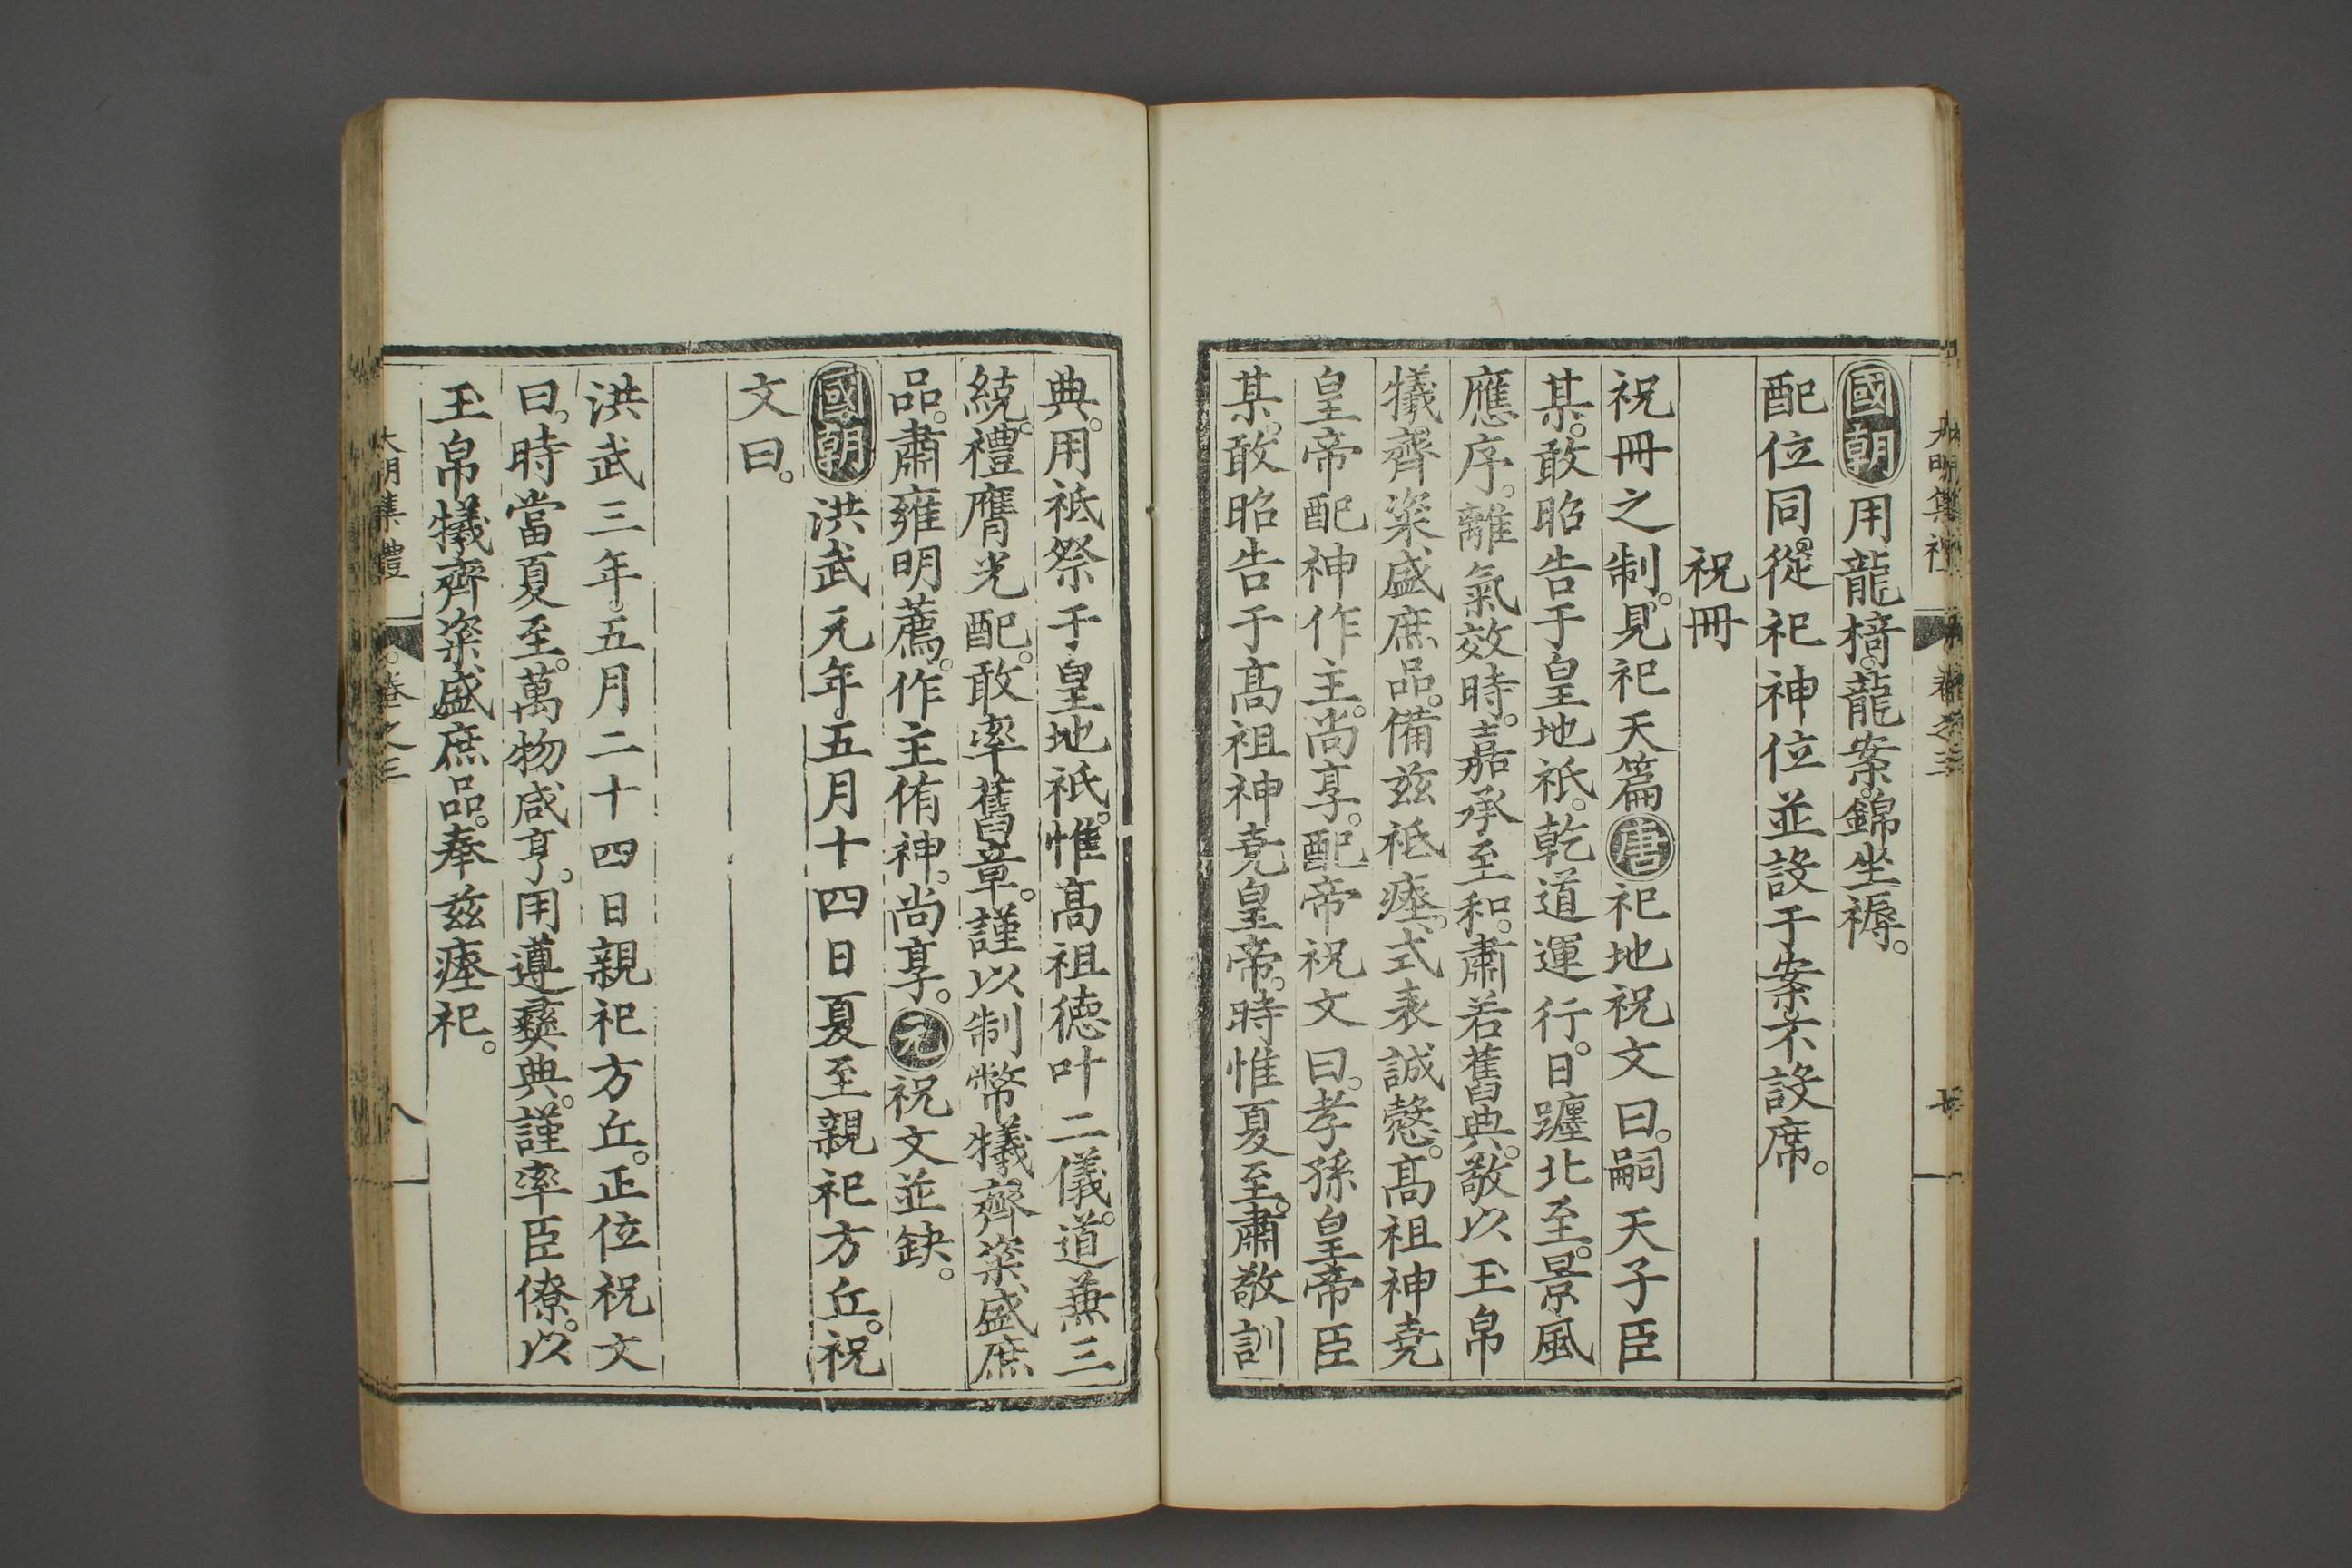 國朝用龍椅。龍案。錦坐褥。
配位同。從祀神位並設于案。不設席。
祝冊
祝冊之制。見祀天篇唐祀地祝文曰。嗣天子臣
某。敢昭告于皇地祇。乾道運行。日躔北至。景風
應序。離氣效時。嘉承至和。肅若舊典。敬以玉帛
犧齊粢盛庶品。備兹祗瘞。式表誠慤。髙祖神堯
皇帝配神作主。尚享。配帝祝文曰。孝孫皇帝臣
某。敢昭告于髙祖神堯皇帝。時惟夏至。肅敬訓
典。用祗祭于皇地祇。惟髙祖德叶二儀。道兼三
統。禮膺光配。敢率舊章。謹以制幣犧齊粢盛庶
品。肅雍明薦。作主侑神。尚享。元祝文並缺。
國朝洪武元年。五月十四日夏至親祀方丘。祝
文曰。
洪武三年。五月二十四日親祀方丘。正位祝文
曰。時當夏至。萬物咸亨。用遵彝典。謹率臣僚。以
玉帛犧齊粢盛庶品。奉兹瘞祀。
大明集禮 卷之三 八